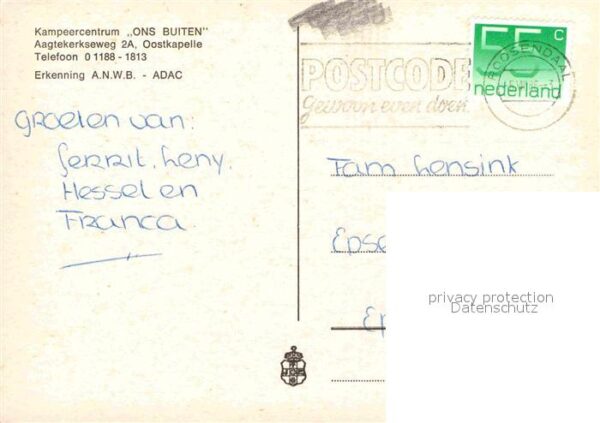 Kampeercentrum ,,ONS BUITEN"
Aagtekerkseweg 2A, Oostkapelle
Telefoon 0 1188 - 1813
Erkenning A.N.W.B. - ADAC
Groeten van:
Gerrit, Leny,
Hessel en
Franca
POSTCODE
Gewoon even doen
ROOSENDAAL
55 c
nederland
Fam Lensink
Epse
Ep
privacy protection
Datenschutz